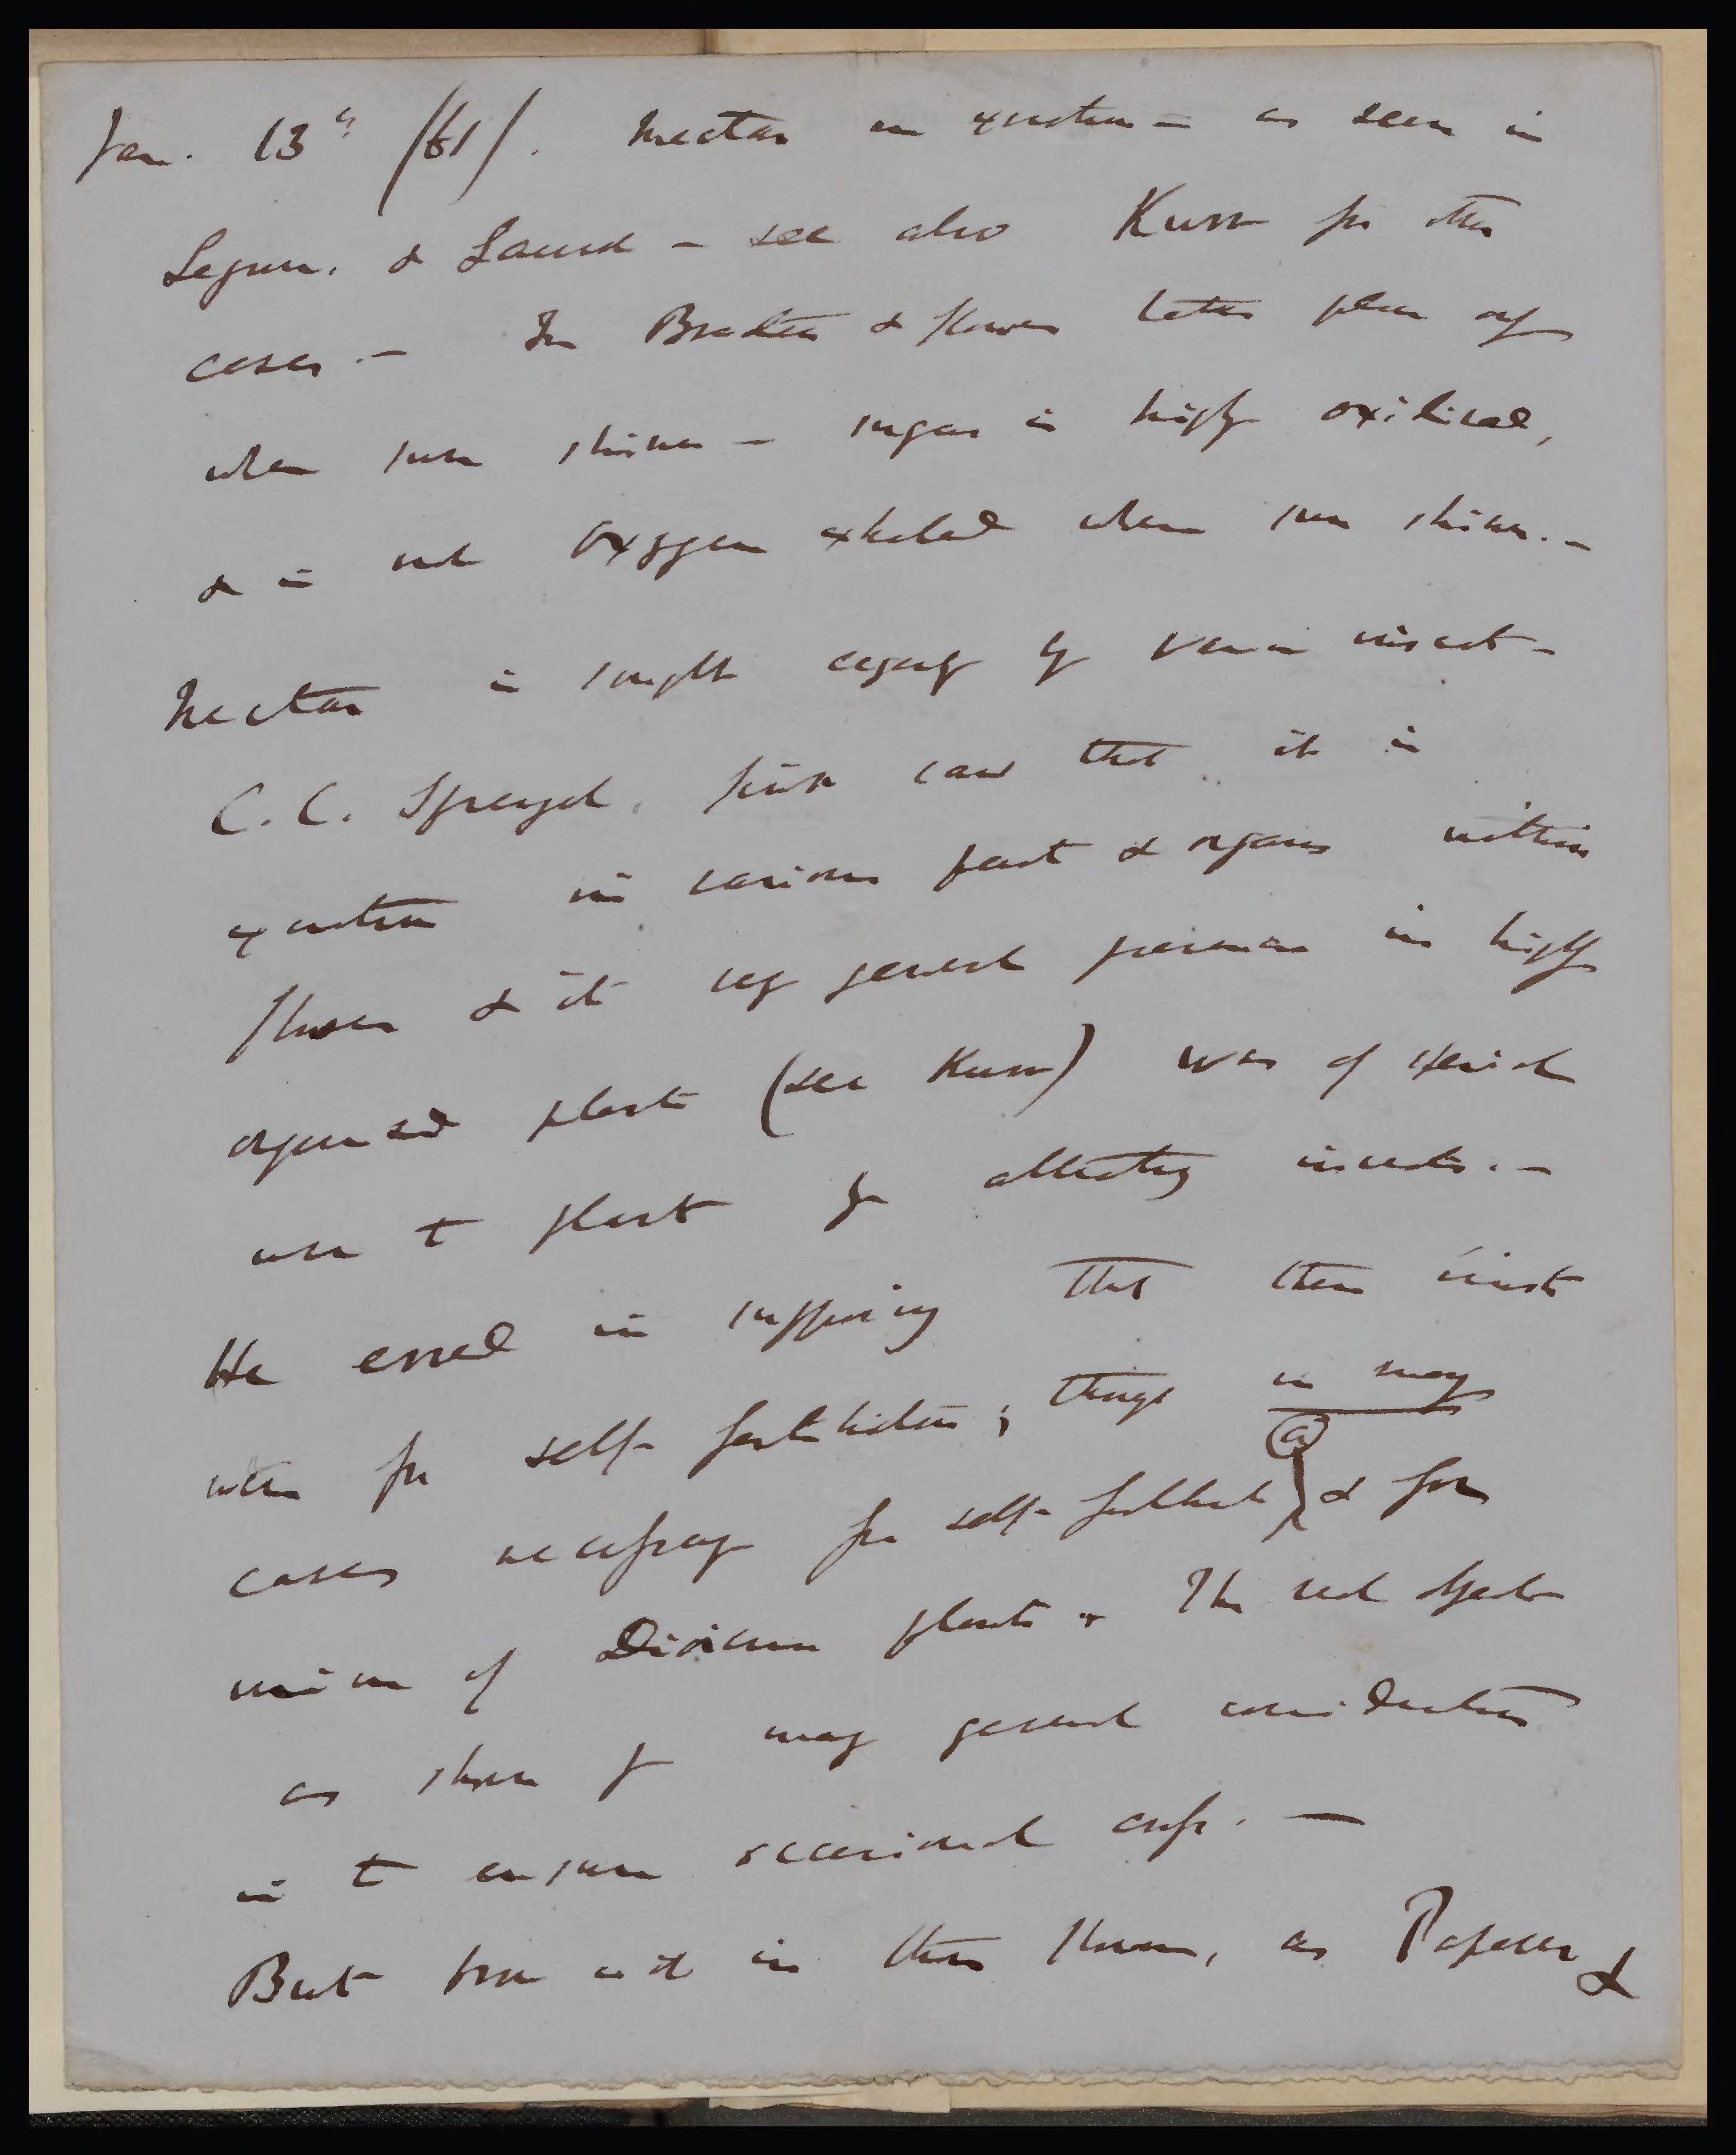 Jan. 13th /61/. Nectar an excretion — as seen in
Legum. & Laurel — see also Kurr for other
cases. — In Bractea & flowers takes place only
when sun shines — sugar is highly oxidised,
& is not oxygen exhaled when sun shines. —
Nectar is sought eagerly by various insects —
C. C. Sprengel, first saw that it is
excretion in various parts & organs within
flowers & its very general presence in highly
organised plants (see Kurr) was of special
use to plant for attracting insects. —
He erred in supposing that these visits
were for self-fertilisation; though in many
(a)
cases necessary for self-fertilisat & for
union of Dioicous plants. The real object
as shown by many general considerations
is to ensure occasional cross. —
But how is it in those flowers, as Papaver &